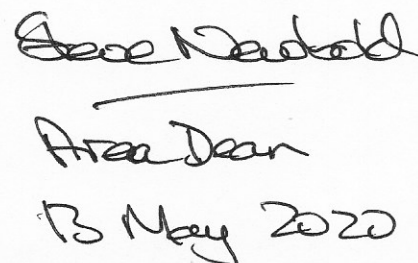 Steve Newbold
Area Dean
13 May 2020